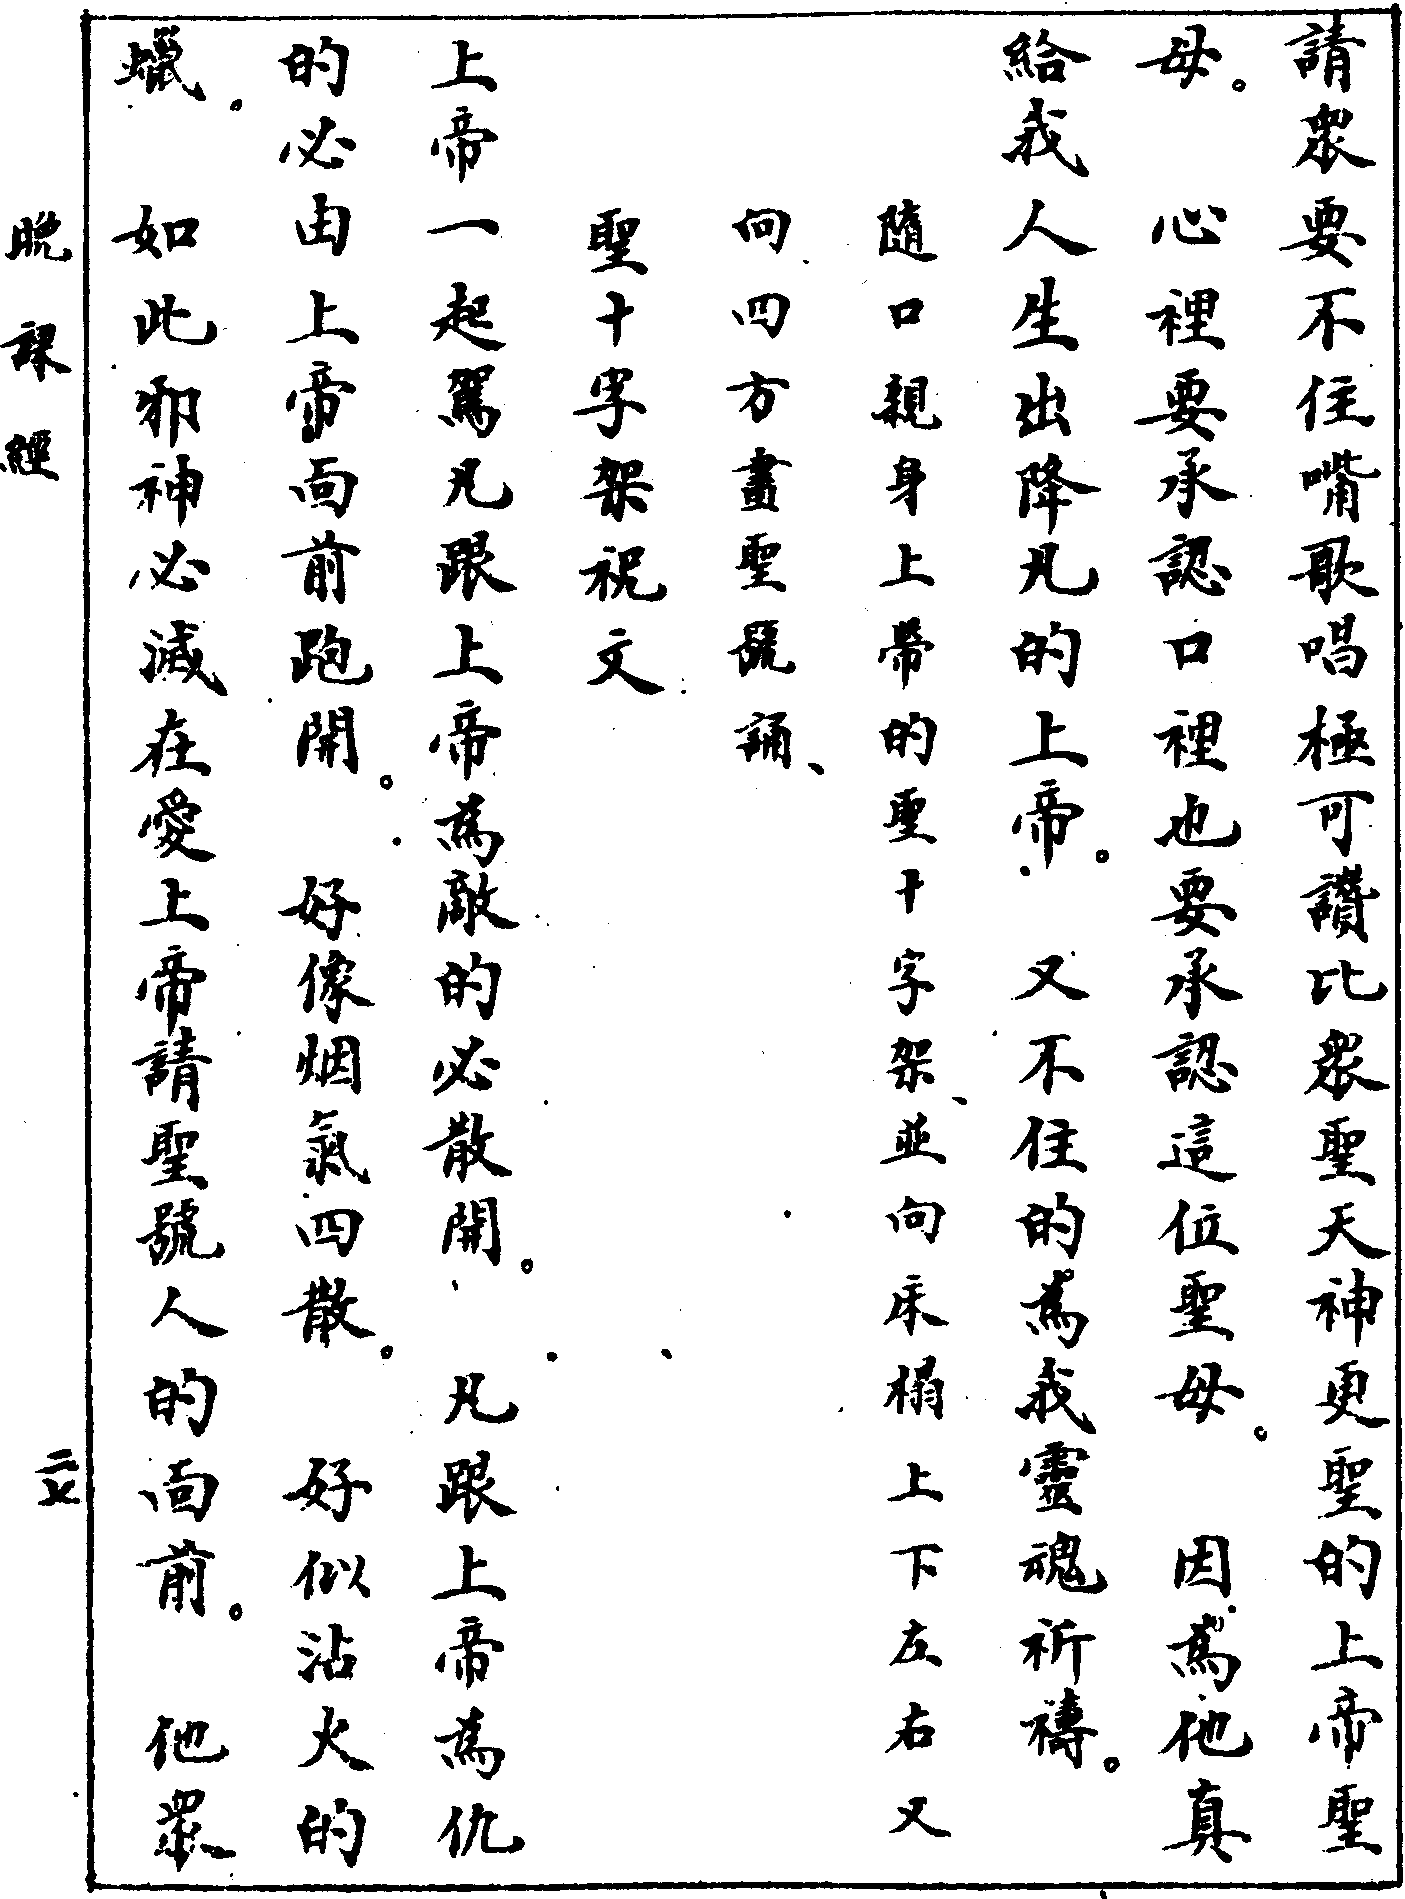 請衆要不住嘴歌唱極可讚比衆聖天神更聖的上帝聖
母。心裡要承認口裡也要承認這位聖母。因爲他真
給我人生出降凡的上帝。又不住的爲我靈魂祈禱。
隨口親身上帶的聖十字架、並向床榻上下左右又
向四方畫聖號誦、
聖十字架祝文
上帝一起駕凡跟上帝爲敵的必散開。凡跟上帝爲仇
的必由上帝面前跑開。好像烟氣四散。好似沾火的
蠟。如此邪神必滅在愛上帝請聖號人的面前。他衆
晩課經
二七